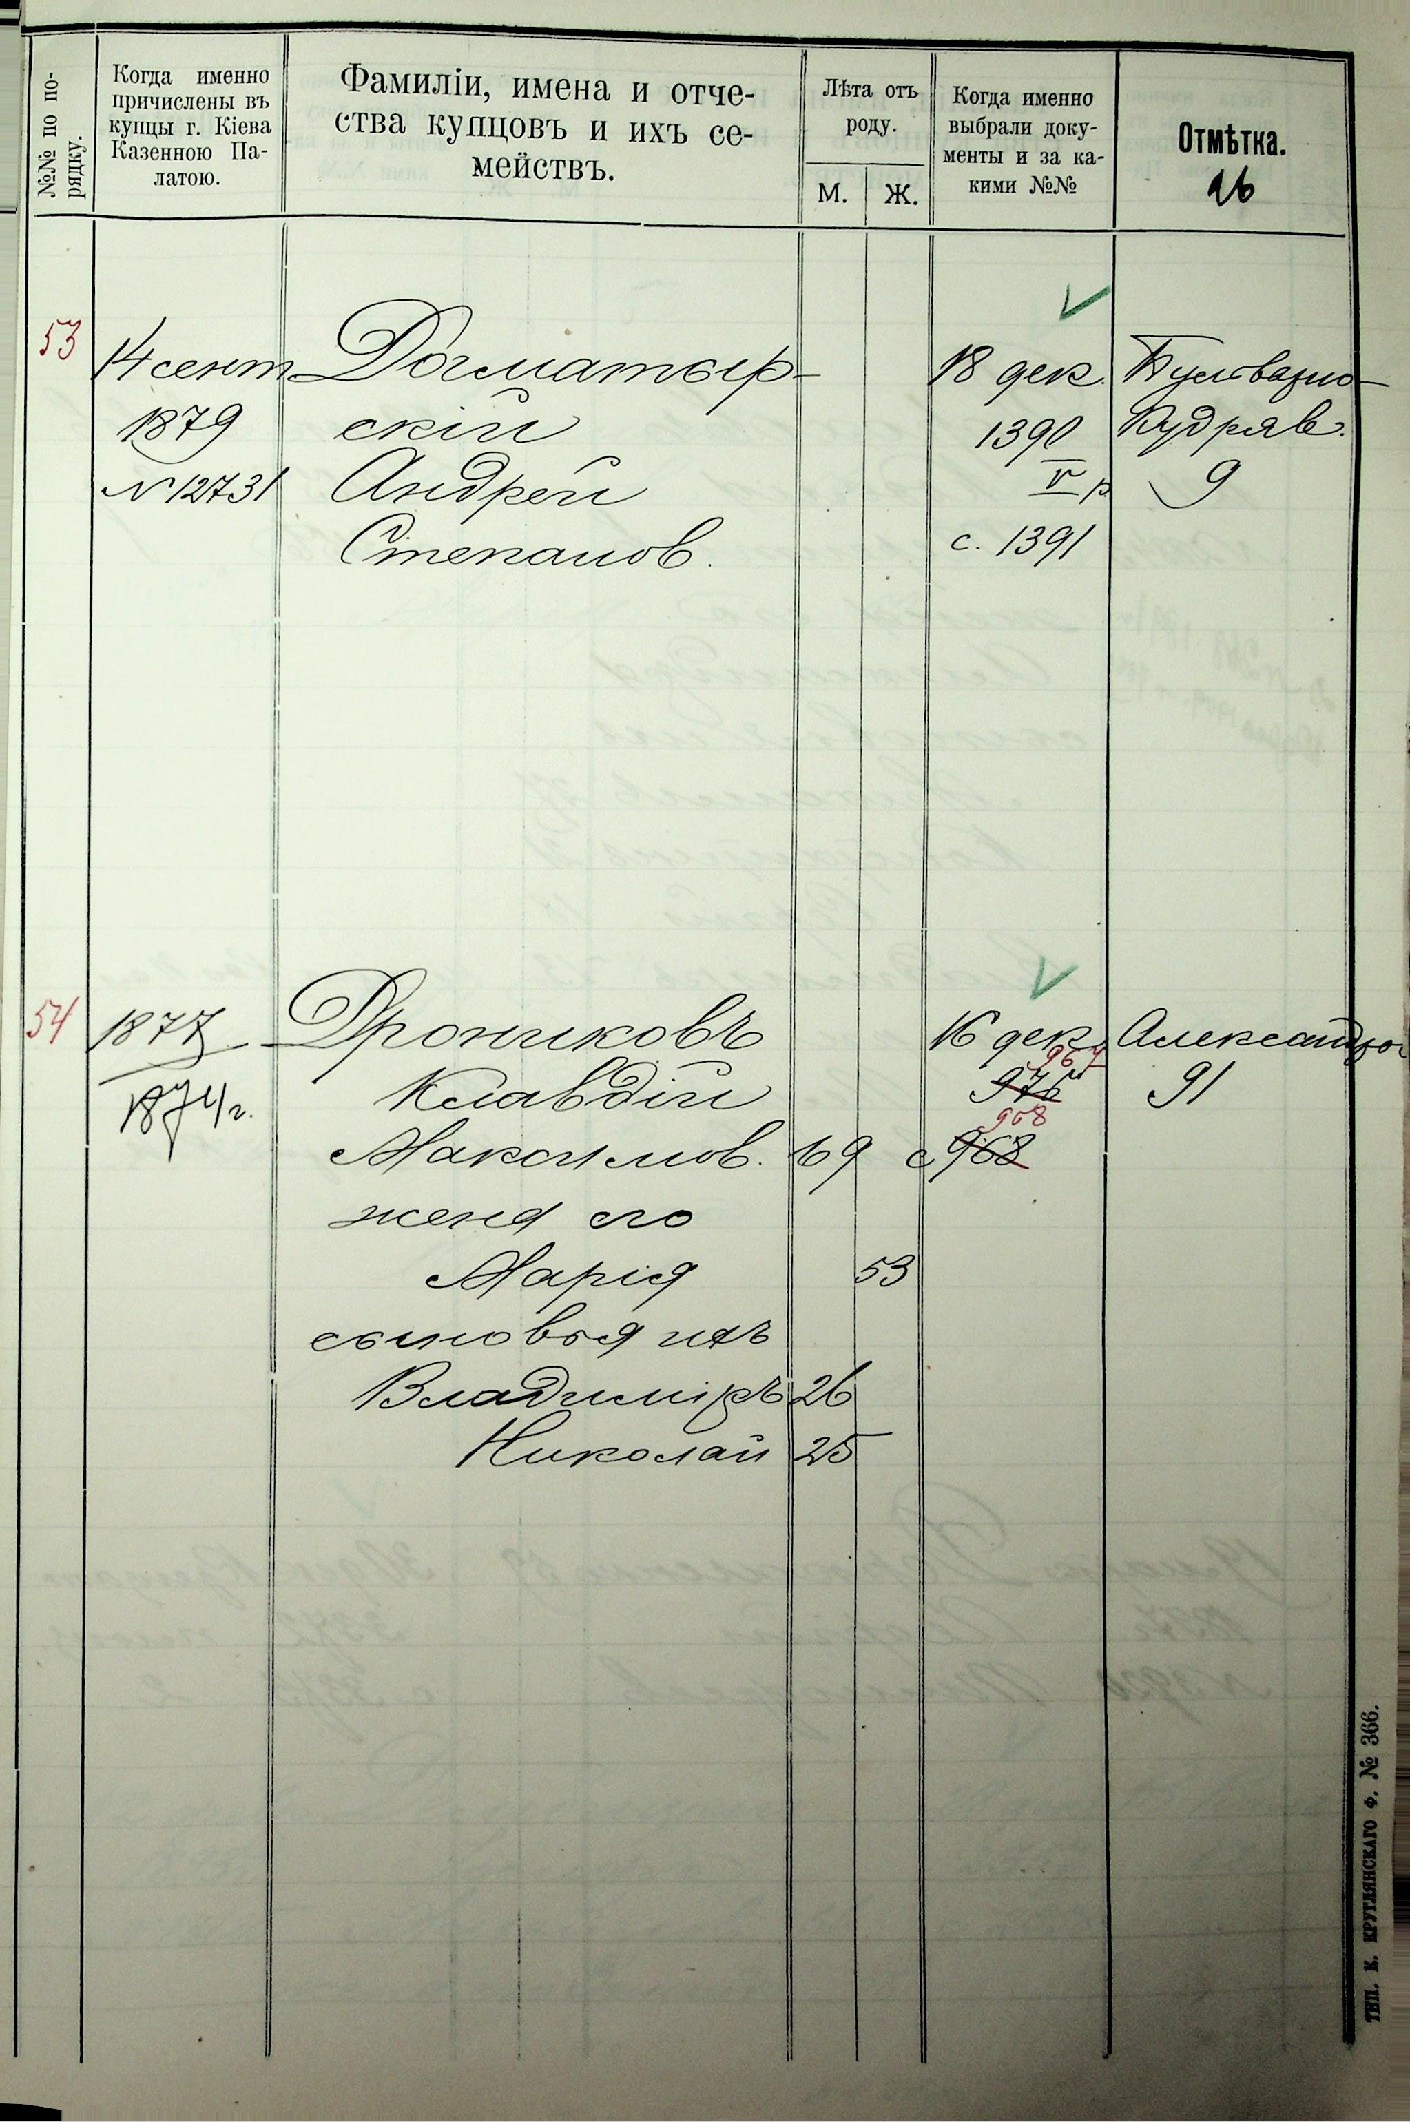 №№ по по-
рядку.
Когда именно
причислены въ
купцы г. Кіева
Казенною Па-
латою.
Фамиліи, имена и отче-
ства купцовъ и ихъ се-
мействъ.
Лѣта отъ
роду.
М. Ж.
Когда именно
выбрали доку-
менты и за ка-
кими №№
Отмѣтка.
26
53
14 сент
1879
№ 12731
Догматыр-
скій
Андрей
Степанов.
18 дек.
1390
V р
с. 1391
Бульварно-
Кудряв.
9
54
1877
1874 г.
Дрониковъ
Клавдій
Максимов. 69
жена его
Марія 53
сыновья ихъ
Владиміръ 26
Николай 25
16 дек.
967
976
968
с 968
Александро
91
ТИП. К. КРУГЛЯНСКАГО Ф. № 366.